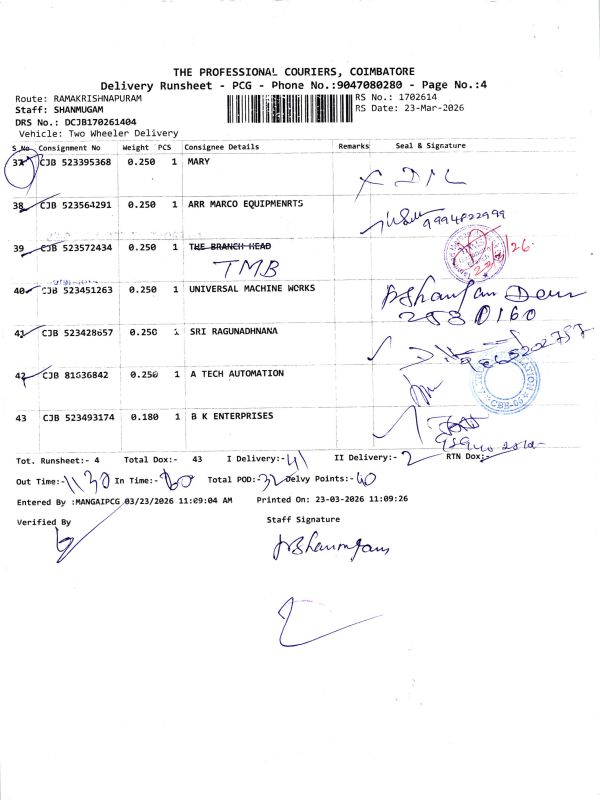 THE PROFESSIONAL COURIERS, COIMBATORE
Delivery Runsheet - PCG - Phone No.:9047080280 - Page No.:4
Route: RAMAKRISHNAPURAM RS No.: 1702614
Staff: SHANMUGAM RS Date: 23-Mar-2026
DRS No.: DCJB170261404
Vehicle: Two Wheeler Delivery
S.No Consignment No Weight PCS Consignee Details Remarks Seal & Signature
37 CJB 523395368 0.250 1 MARY
38 CJB 523564291 0.250 1 ARR MARCO EQUIPMENRTS
9994822999
39 CJB 523572434 0.250 1 THE BRANCH HEAD
TMB
40 CJB 523451263 0.250 1 UNIVERSAL MACHINE WORKS
2580160
41 CJB 523428657 0.250 1 SRI RAGUNADHNANA
42 CJB 81636842 0.250 1 A TECH AUTOMATION
43 CJB 523493174 0.180 1 B K ENTERPRISES
Tot. Runsheet:- 4 Total Dox:- 43 I Delivery:- 41 II Delivery:- 2 RTN Dox:-
Out Time:- 1130 In Time:- Total POD:- 32 Delvy Points:- 40
Entered By :MANGAIPCG 03/23/2026 11:09:04 AM Printed On: 23-03-2026 11:09:26
Verified By Staff Signature